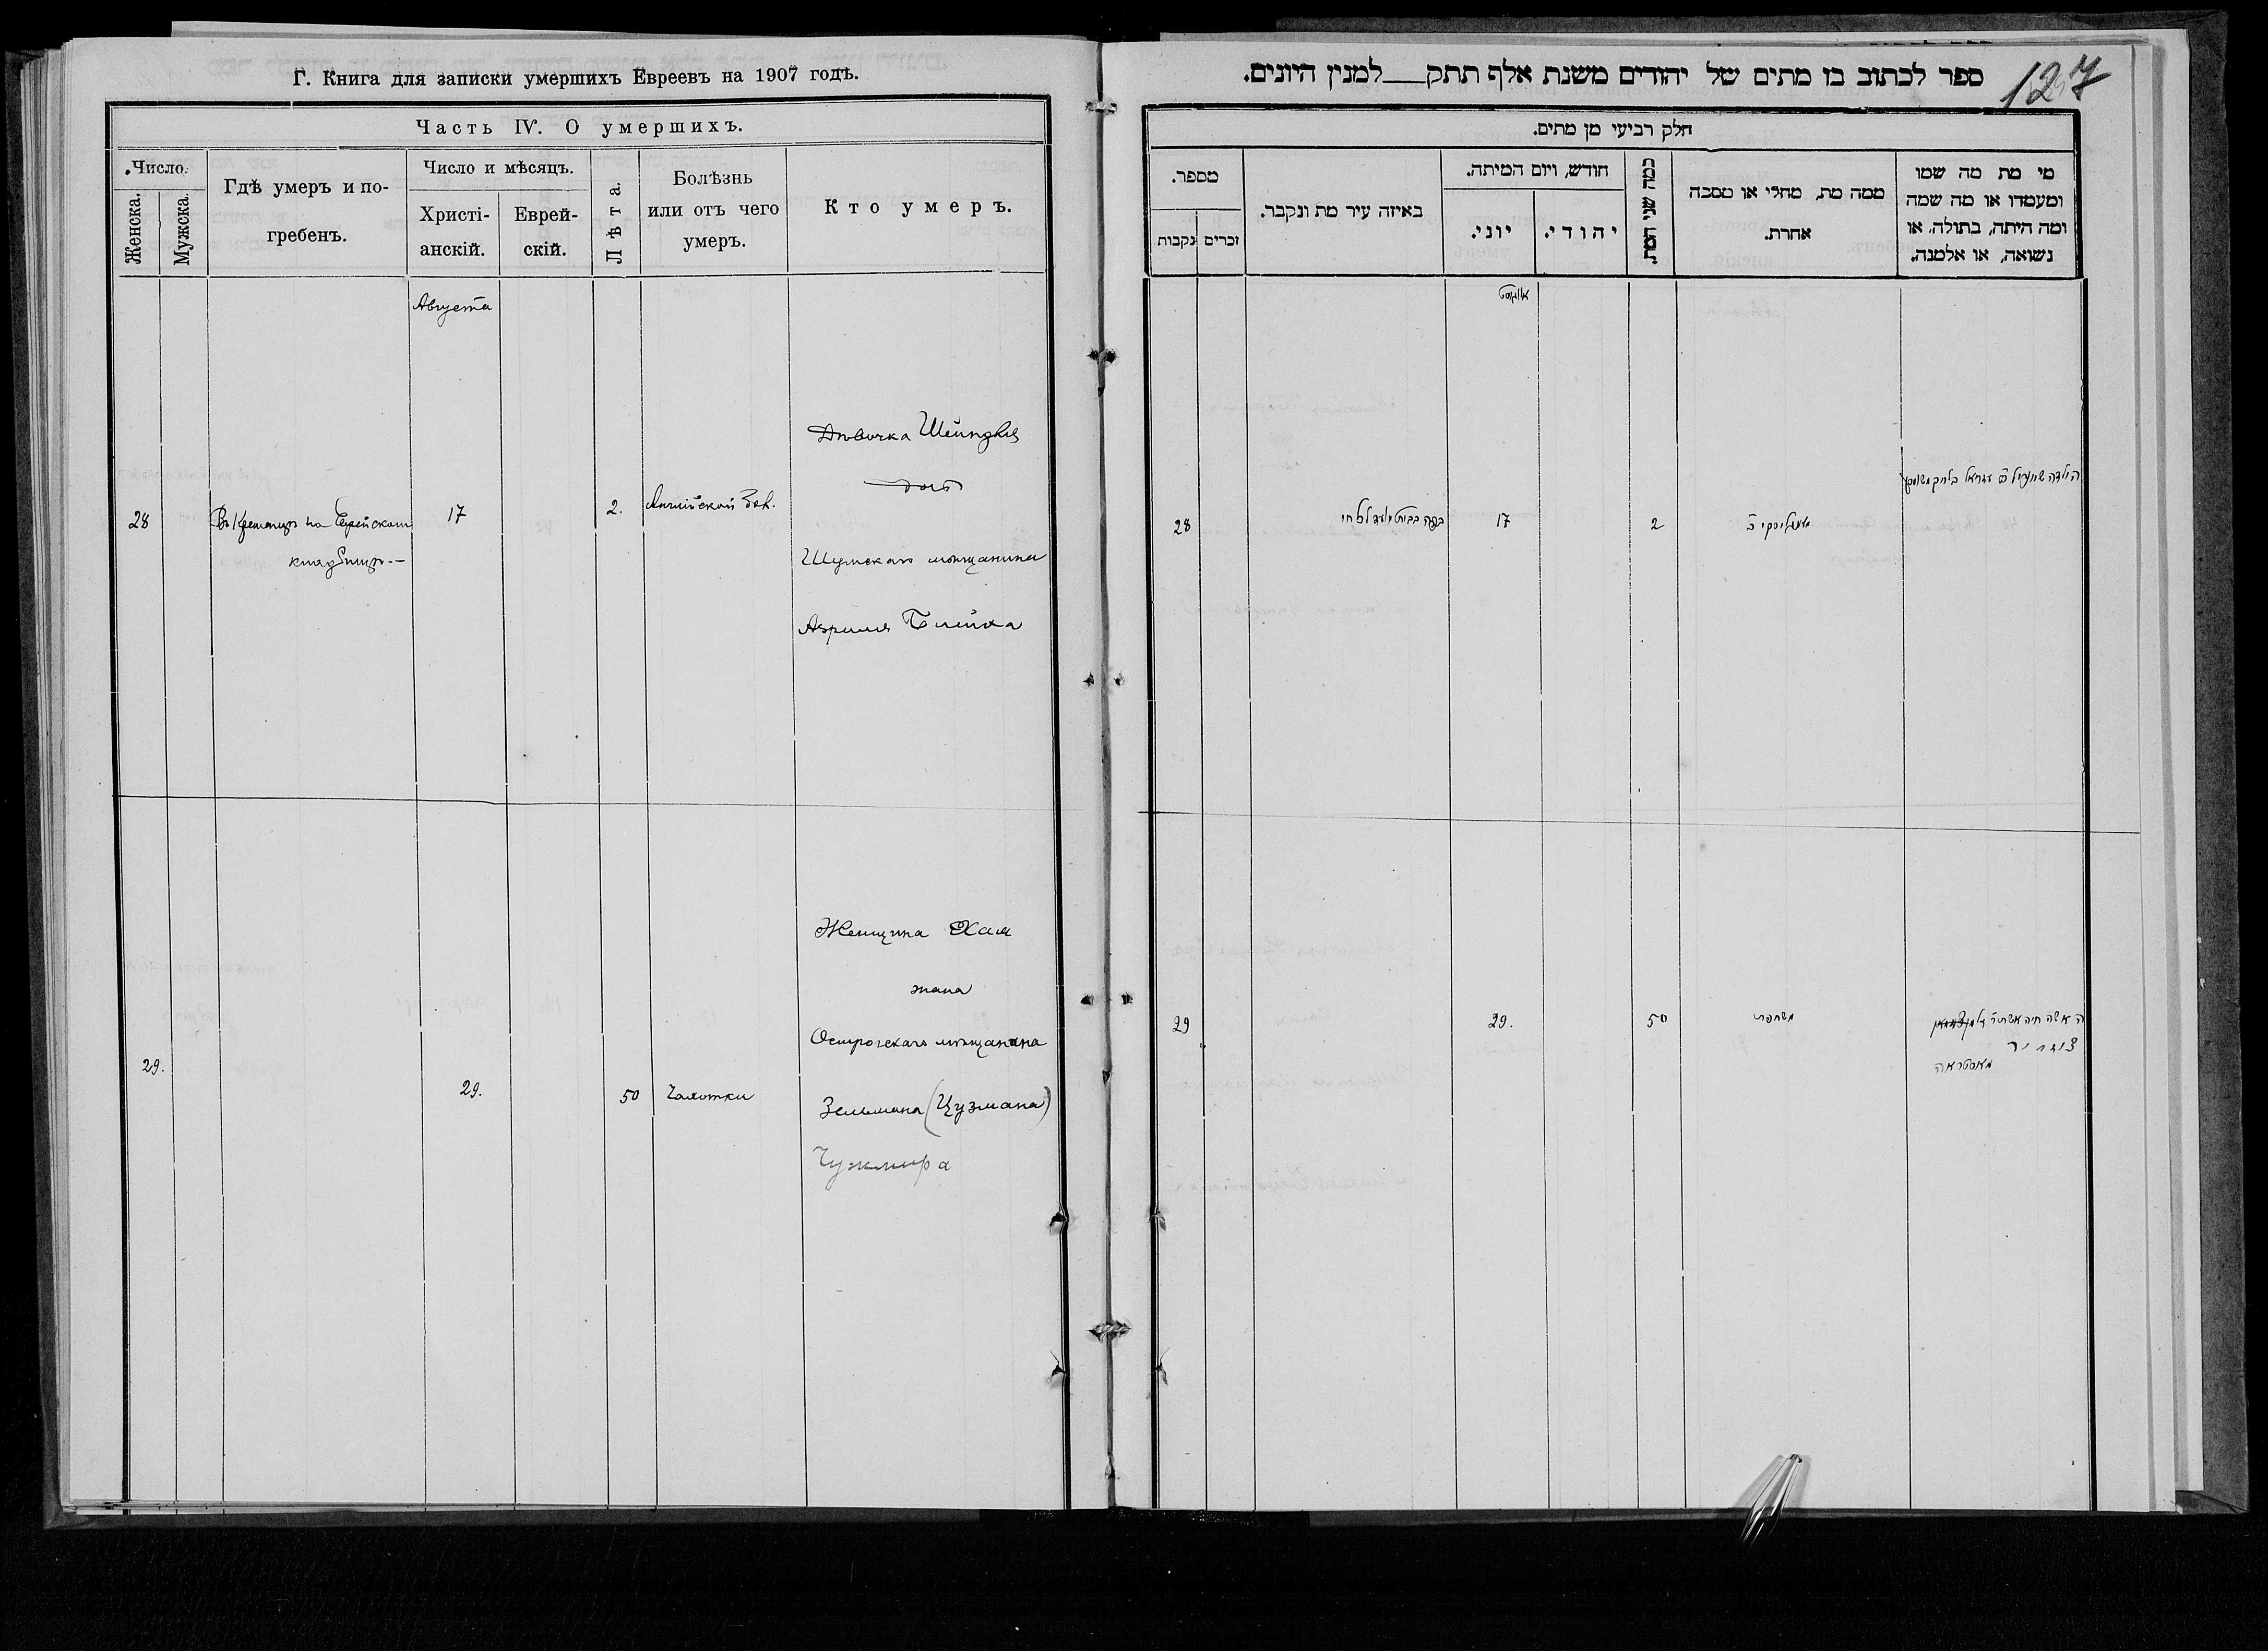 Г. Книга для записки умершихъ Евреевъ на 1907 годъ.
Часть IV. О умершихъ.
Число.
Женска.
Мужска.
Гдѣ умеръ и по-
гребенъ.
Число и мѣсяцъ.
Христі-
анскій.
Еврей-
скій.
Лѣта.
Болѣзнь
или отъ чего
умеръ.
Кто умеръ.
Августа
28
Въ Кременцѣ на Еврейскомъ
кладбищѣ.—
17
2.
Английской бол.
Дѣвочка Шейндля
дочь
Шумскаго мѣщанина
Азриля
29.
29.
50
Чахотки
Женщина Хая
жена
Острогскаго мѣщанина
Зельмана (Цузмана)
Чужмира
127
ספר לכתוב בו מתים של יהודים משנת אלף תתק__למנין היונים.
חלק רביעי מן מתים.
מספר.
נקבות
זכרים
באיזה עיר מת ונקבר.
חודש, ויום המיתה.
יוני.
יהודי.
כמה שני המת.
ממה מת, מחלי או מסבה
אחרת.
מי מת מה שמו
ומעמדו או מה שמה
ומה היתה, בתולה, או
נשואה, או אלמנה.
אווגוסט
28
17
2
הילדה
29
29.
50
משחפת
האשה חיה אשת